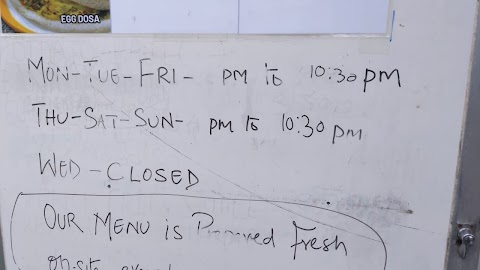 EGG DOSA
MON-TUE-FRI- PM to 10:30pm
THU-SAT-SUN- PM to 10:30 pm
WED-CLOSED
OUR MENU is Prepared Fresh
on-site